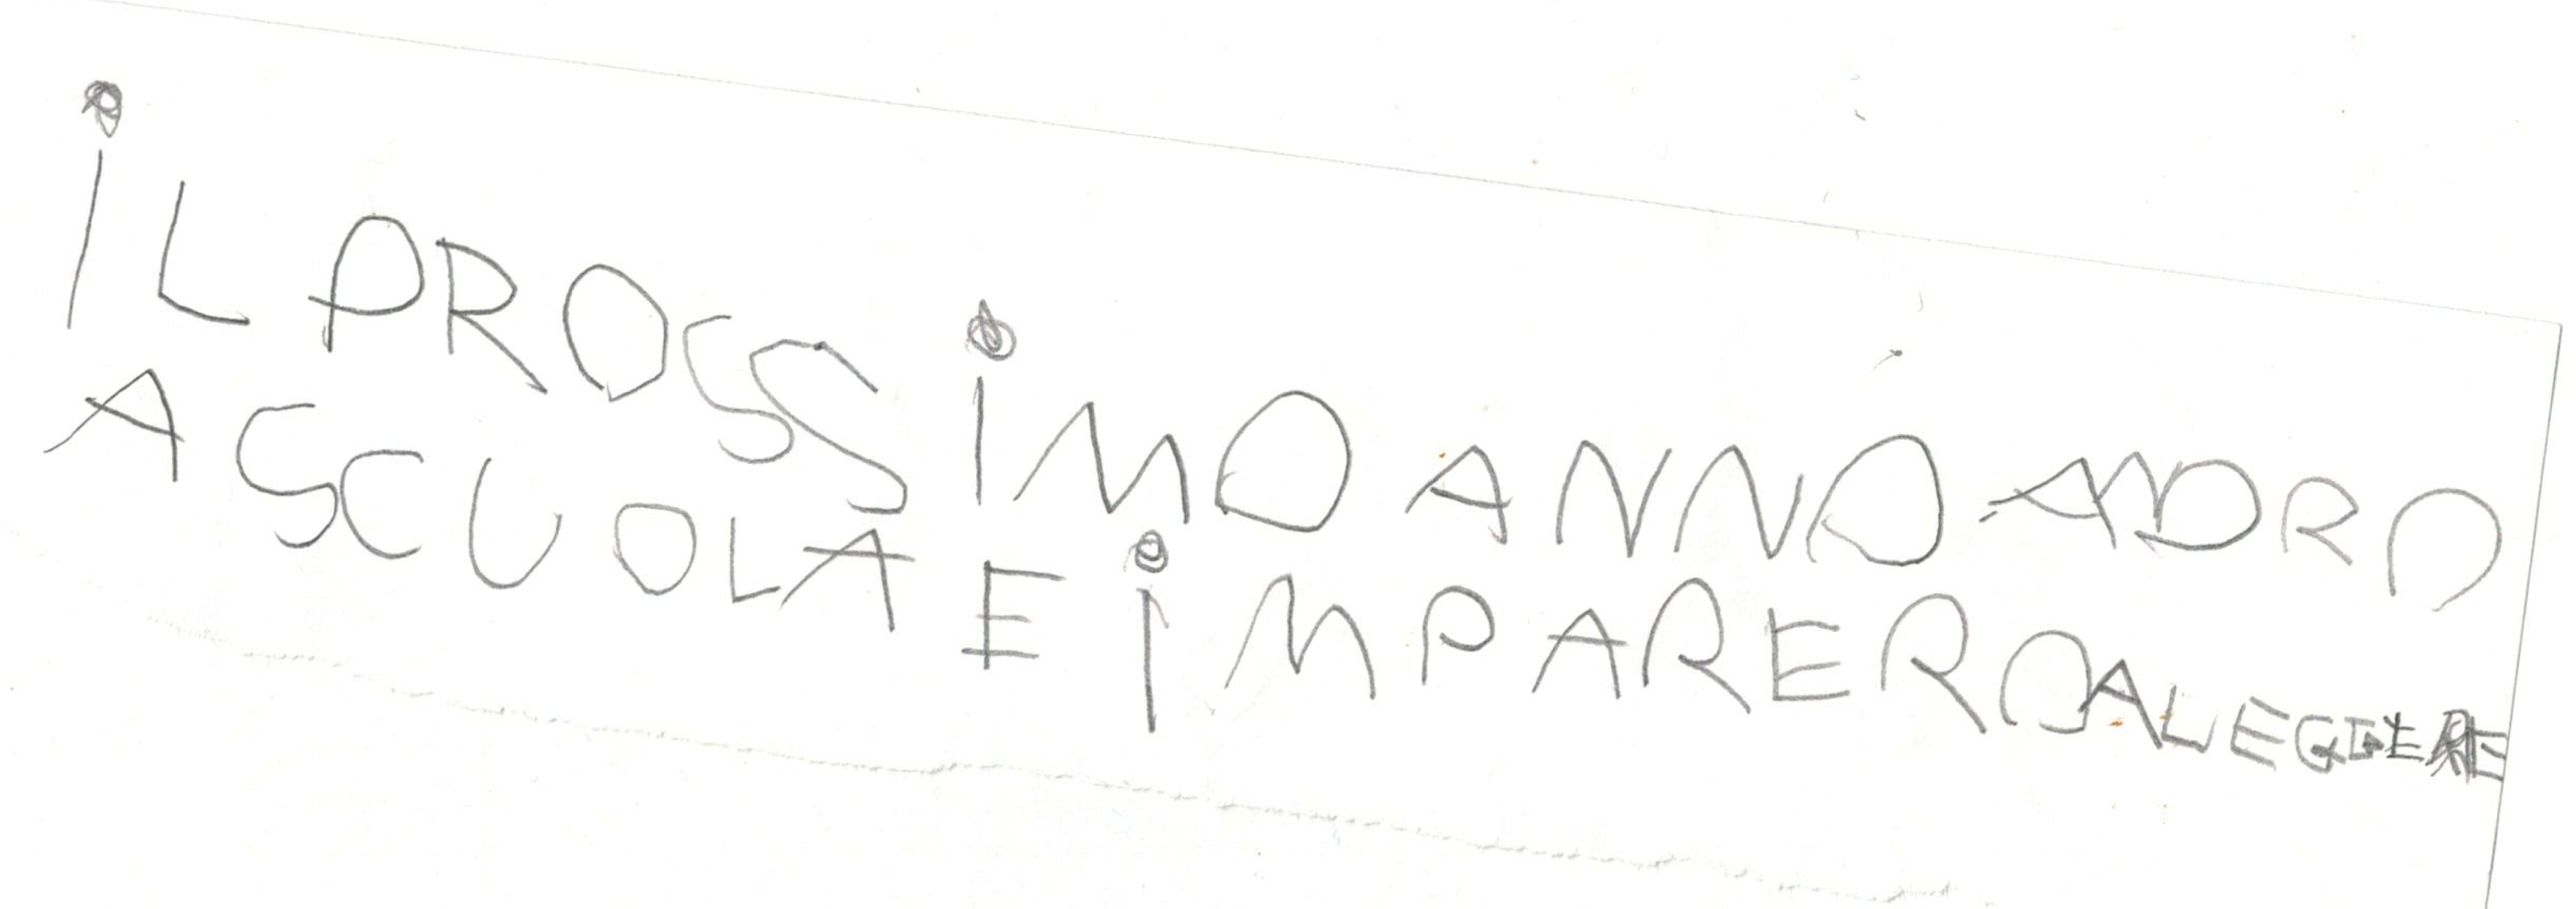 iL PROSSiMO ANNO ANDRO
A SCUOLA E iMPARERO A LEGGERE